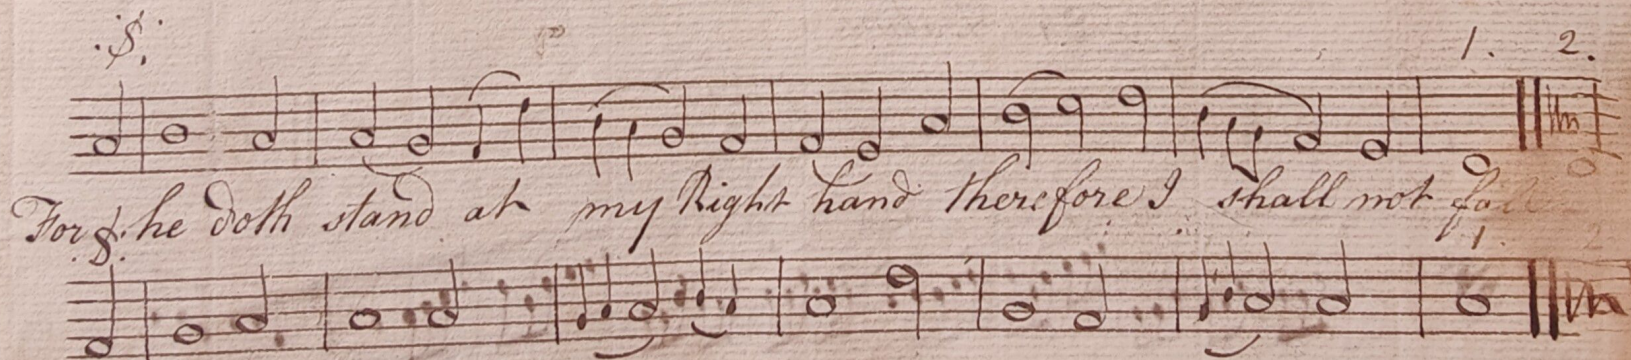 .S.
1. 2.
For he doth stand at my Right hand therefore I shall not fall
.S. 1. 2